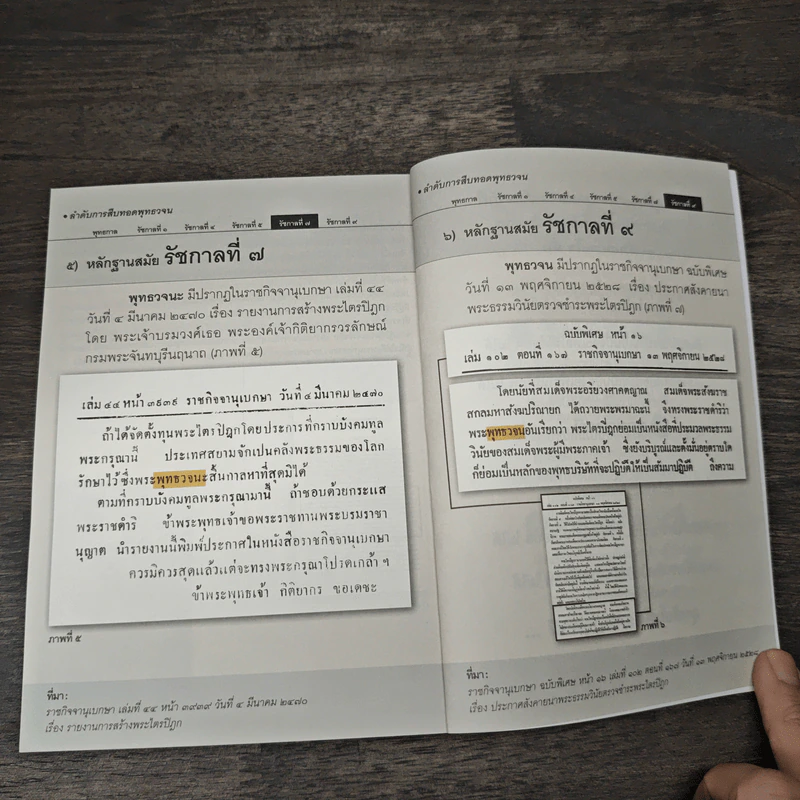 • ลำดับการสืบทอดพุทธวจน
พุทธกาล รัชกาลที่ ๑ รัชกาลที่ ๔ รัชกาลที่ ๕ รัชกาลที่ ๗ รัชกาลที่ ๙
๕) หลักฐานสมัย รัชกาลที่ ๗
พุทธวจนะ มีปรากฏในราชกิจจานุเบกษา เล่มที่ ๔๔
วันที่ ๔ มีนาคม ๒๔๗๐ เรื่อง รายงานการสร้างพระไตรปิฎก
โดย พระเจ้าบรมวงศ์เธอ พระองค์เจ้ากิติยากรวรลักษณ์
กรมพระจันทบุรีนฤนาถ (ภาพที่ ๕)
เล่ม ๔๔ หน้า ๓๙๓๙ ราชกิจจานุเบกษา วันที่ ๔ มีนาคม ๒๔๗๐
ถ้าได้จัดตั้งทุนพระไตรปิฎกโดยประการที่กราบบังคมทูล
พระกรุณานี้ ประเทศสยามจักเป็นคลังพระธรรมของโลก
รักษาไว้ซึ่งพระพุทธวจนะสิ้นกาลหาที่สุดมิได้
ตามที่กราบบังคมทูลพระกรุณามานี้ ถ้าชอบด้วยกระแส
พระราชดำริ ข้าพระพุทธเจ้าขอพระราชทานพระบรมราชา
นุญาต นำรายงานนี้พิมพ์ประกาศในหนังสือราชกิจจานุเบกษา
ควรมิควรสุดแล้วแต่จะทรงพระกรุณาโปรดเกล้า ฯ
ข้าพระพุทธเจ้า กิติยากร ขอเดชะ
ภาพที่ ๕
ที่มา:
ราชกิจจานุเบกษา เล่มที่ ๔๔ หน้า ๓๙๓๙ วันที่ ๔ มีนาคม ๒๔๗๐
เรื่อง รายงานการสร้างพระไตรปิฎก
• ลำดับการสืบทอดพุทธวจน
พุทธกาล รัชกาลที่ ๑ รัชกาลที่ ๔ รัชกาลที่ ๕ รัชกาลที่ ๗ รัชกาลที่ ๙
๖) หลักฐานสมัย รัชกาลที่ ๙
พุทธวจน มีปรากฏในราชกิจจานุเบกษา ฉบับพิเศษ
วันที่ ๑๓ พฤศจิกายน ๒๕๒๘ เรื่อง ประกาศสังคายนา
พระธรรมวินัยตรวจชำระพระไตรปิฎก (ภาพที่ ๗)
ฉบับพิเศษ หน้า ๑๖
เล่ม ๑๐๒ ตอนที่ ๑๖๗ ราชกิจจานุเบกษา ๑๓ พฤศจิกายน ๒๕๒๘
โดยนัยที่สมเด็จพระอริยวงศาคตญาณ สมเด็จพระสังฆราช
สกลมหาสังฆปริณายก ได้ถวายพระพรมาฉะนี้ จึงทรงพระราชดำริว่า
พระพุทธวจนอันเรียกว่า พระไตรปิฎกย่อมเป็นหนังสือที่ประมวลพระธรรม
วินัยของสมเด็จพระผู้มีพระภาคเจ้า ซึ่งยังบริบูรณ์และตั้งมั่นอยู่ตราบใด
ก็ย่อมเป็นหลักของพุทธบริษัทที่จะปฏิบัติให้เป็นสัมมาปฏิบัติ ถึงความ
ภาพที่ ๖
ที่มา:
ราชกิจจานุเบกษา ฉบับพิเศษ หน้า ๑๖ เล่มที่ ๑๐๒ ตอนที่ ๑๖๘ วันที่ ๑๓ พฤศจิกายน ๒๕๒๘
เรื่อง ประกาศสังคายนาพระธรรมวินัยตรวจชำระพระไตรปิฎก